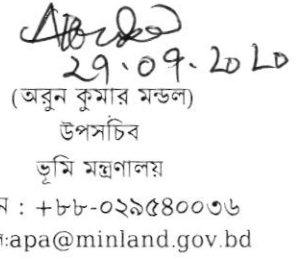 29.09.2020
(অরুন কুমার মন্ডল)
উপসচিব
ভূমি মন্ত্রণালয়
ন : +৮৮-০২৯৫৪০০৩৬
ল:apa@minland.gov.bd